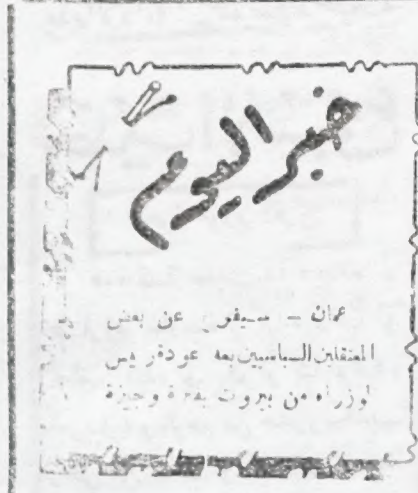 خبر اليوم
عمان — سيفرج عن بعض
المعتقلين السياسيين بعد عودة رئيس
الوزراء من بيروت بفترة وجيزة